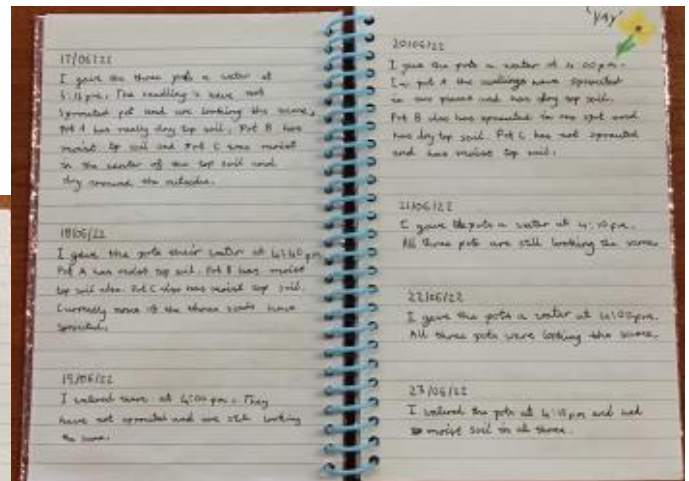 17/06/22
I gave the three pots a water at
5:15pm. The seedling's have not
sprouted yet and are looking the same,
Pot A has really dry top soil, Pot B has
moist top soil and Pot C was moist
in the center of the top soil and
dry around the outside.
18/06/22
I gave the pots their water at 4:40pm
Pot A has moist top soil. Pot B has moist
top soil also. Pot C also has moist top soil.
Currently none of the three seeds have
sprouted.
19/06/22
I watered them at 4:00 pm. They
have not sprouted and are still looking
the same.
'YAY'
20/06/22
I gave the pots a water at 4:00pm.
In pot A the seedlings have sprouted
in two places and has dry top soil.
Pot B also has sprouted in one spot and
has dry top soil. Pot C has not sprouted
and has moist top soil.
21/06/22
I gave the pots a water at 4:10pm.
All three pots are still looking the same.
22/06/22
I gave the pots a water at 4:00pm.
All three pots were looking the same.
23/06/22
I watered the pots at 4:15pm and had
moist soil in all three.